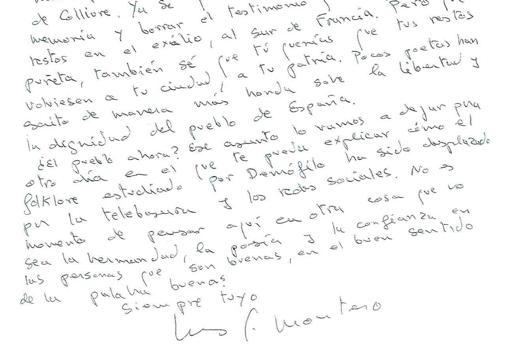 de Colliure. Ya sé
memoria y borrar el testimonio
restos en el exilio, al sur de Francia. Pero
puñeta, también sé que tú querías que tus restos
volviesen a tu ciudad, a tu patria. Pocos poetas han
escrito de manera más honda sobre la libertad y
la dignidad del pueblo de España.
¿El pueblo ahora? Ese asunto lo vamos a dejar para
otro día en el que te pueda explicar cómo el
folklore estudiado por Demófilo ha sido desplazado
por la telebasura y las redes sociales. No es
momento de pensar aquí en otra cosa que no
sea la hermandad, la poesía y la confianza en
las personas que son buenas, en el buen sentido
de la palabra buenas.
Siempre tuyo
Luis G. Montero